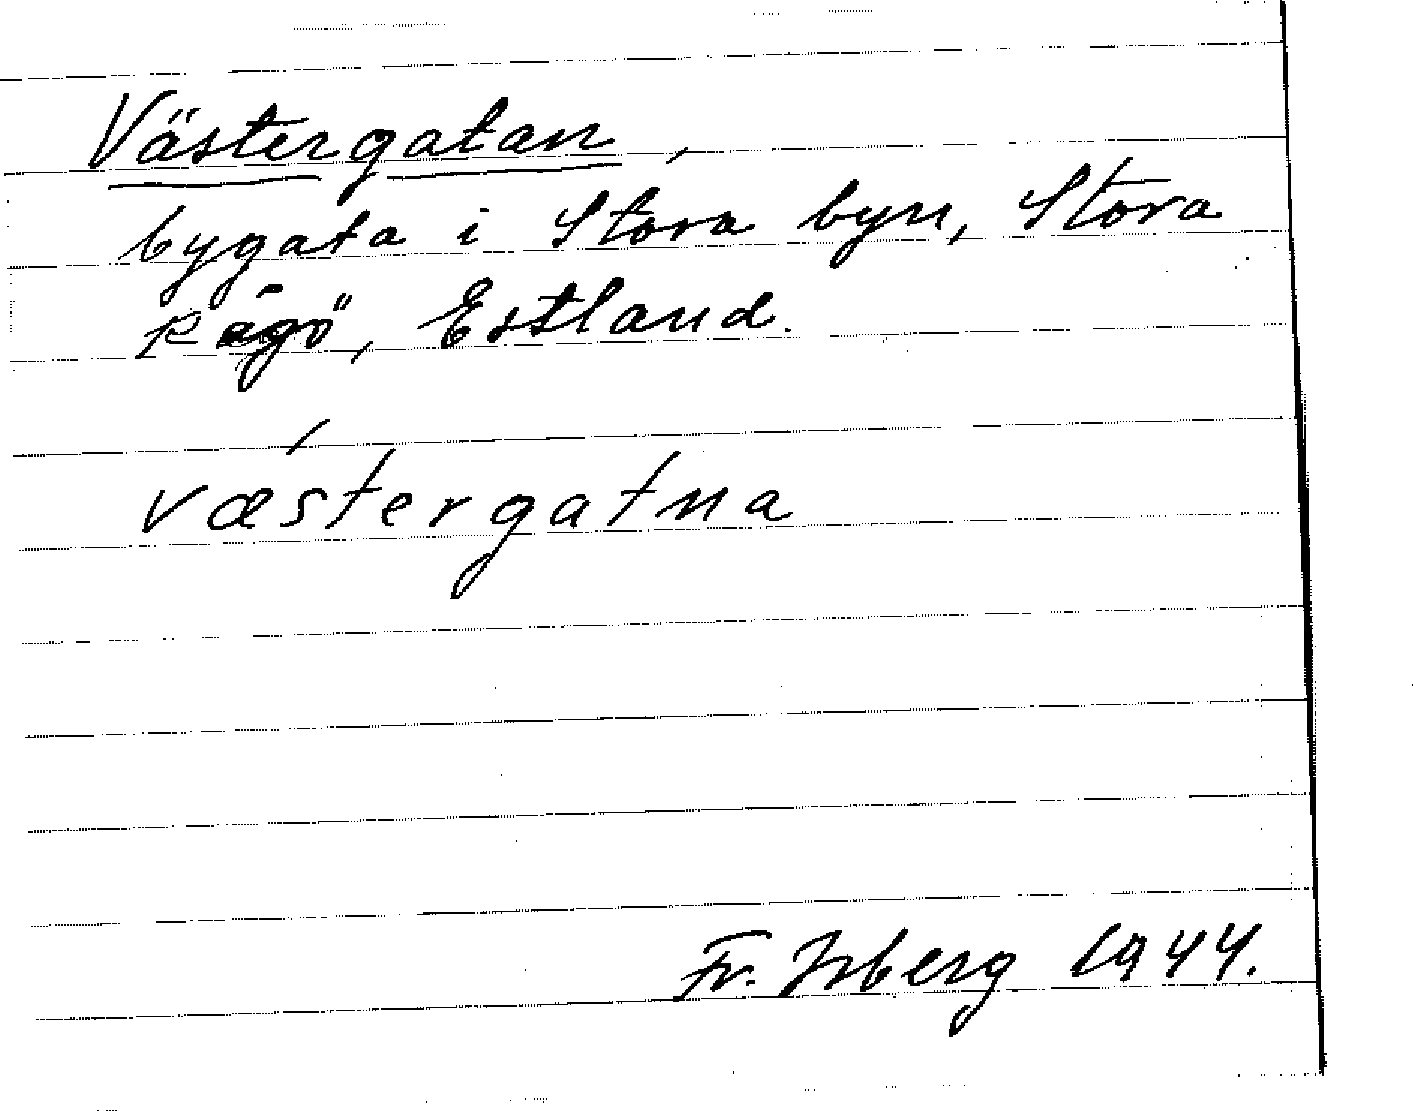 Västergatan,
bygata i Stora byn, Stora
Rågö, Estland.
væśtergatna
Fr. Isberg 1944.